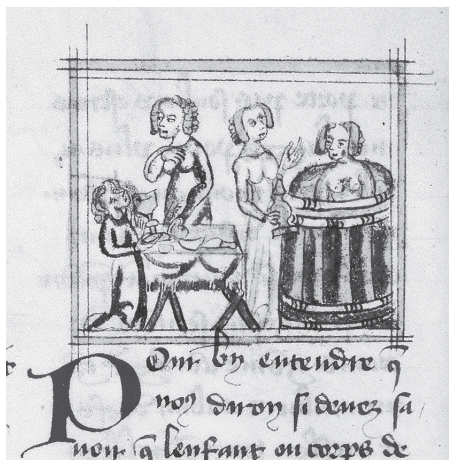 Pour bn entendre q̄
noꝯ diron si devez sa
uoir q̄ lenfant ou corps de